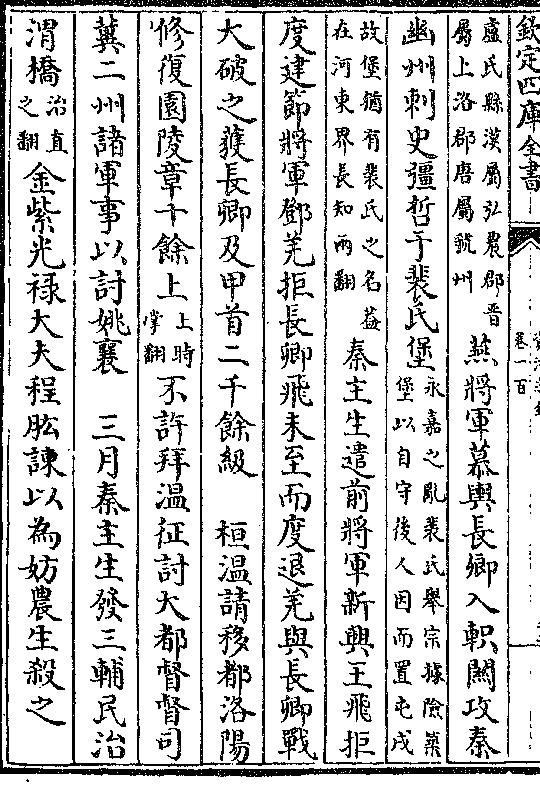 欽定四庫全書
卷一百
盧氏縣漢屬弘農郡晉
屬上洛郡唐屬虢州
燕將軍慕輿長卿入軹關攻秦
幽州刺史彊哲于裴氏堡
永嘉之亂裴氏舉宗據險築
堡以自守後人因而置屯戍
故堡猶有裴氏之名蓋
在河東界長知兩翻
秦主生遣前將軍新興王飛拒
度建節將軍鄧羌拒長卿飛未至而度退羌與長卿戰
大破之獲長卿及甲首二千餘級　桓温請移都洛陽
修復園陵章十餘上
上時
掌翻
不許拜温征討大都督督司
冀二州諸軍事以討姚襄　三月秦主生發三輔民治
渭橋
治直
之翻
金紫光禄大夫程肱諫以為妨農生殺之